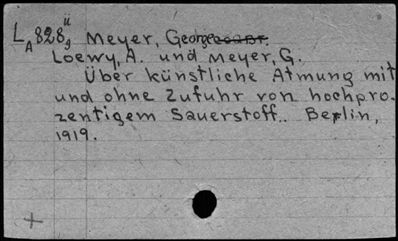 L A 828 g" Meyer, George
Loewy, A. und Meyer, G.
Über künstliche Atmung mit
und ohne Zufuhr von hochpro-
zentigem Sauerstoff.. Berlin,
1919.